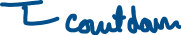 I countdown